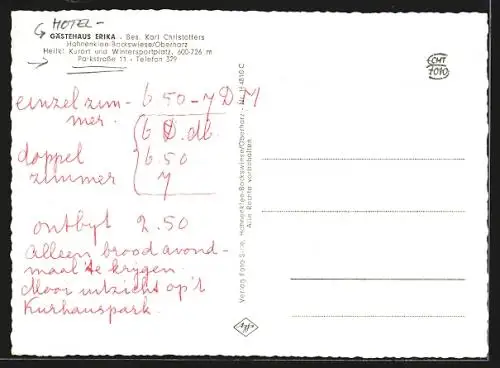 HOTEL-
GÄSTEHAUS ERIKA - Bes. Karl Christoffers
Hahnenklee-Bockswiese/Oberharz
Heilkl. Kurort und Wintersportplatz, 600-726 m
Parkstraße 11 · Telefon 329
CHT
7010
einzel zim- 6 50 - 7 D M
mer.
6 D. db.
doppel 6.50
zimmer 7
ontbyt 2.50
Alleen brood avond-
maal te krygen.
Mooi uitzicht op 't
Kurhauspark.
Verlag Foto Hahnenklee-Bockswiese/Oberharz - Nr. H 4810 C
Alle Rechte vorbehalten
Agfa